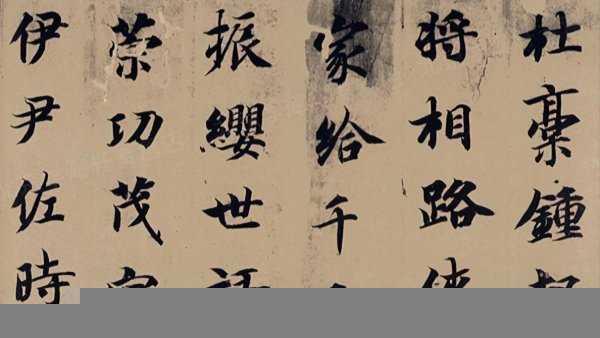 杜稾鍾
將相路
家給千
振纓世
策功茂
伊尹佐時